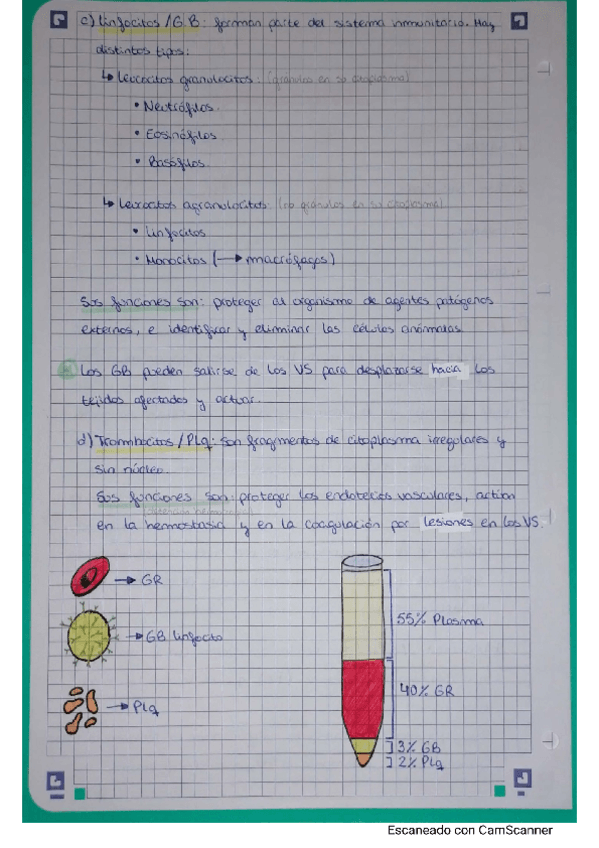 c) Linfocitos / G B: forman parte del sistema inmunitario. Hay
distintos tipos:
↳ Leucocitos granulocitos: (gránulos en su citoplasma)
• Neutrófilos.
• Eosinófilos.
• Basófilos.
↳ Leucocitos agranulocitos: (no gránulos en su citoplasma)
• Linfocitos
• Monocitos (→ macrófagos)
Sus funciones son: proteger al organismo de agentes patógenos
externos, e identificar y eliminar las células anómalas.
Los GB pueden salirse de los VS para desplazarse hacia los
tejidos afectados y actuar.
d) Trombocitos / Plq: son fragmentos de citoplasma irregulares y
sin núcleo.
Sus funciones son: proteger los endotelios vasculares, actúan
en la hemostasia y en la coagulación por lesiones en los VS.
→ GR
→ GB linfocito
→ Plq
55% Plasma
40% GR
3% GB
2% Plq
Escaneado con CamScanner